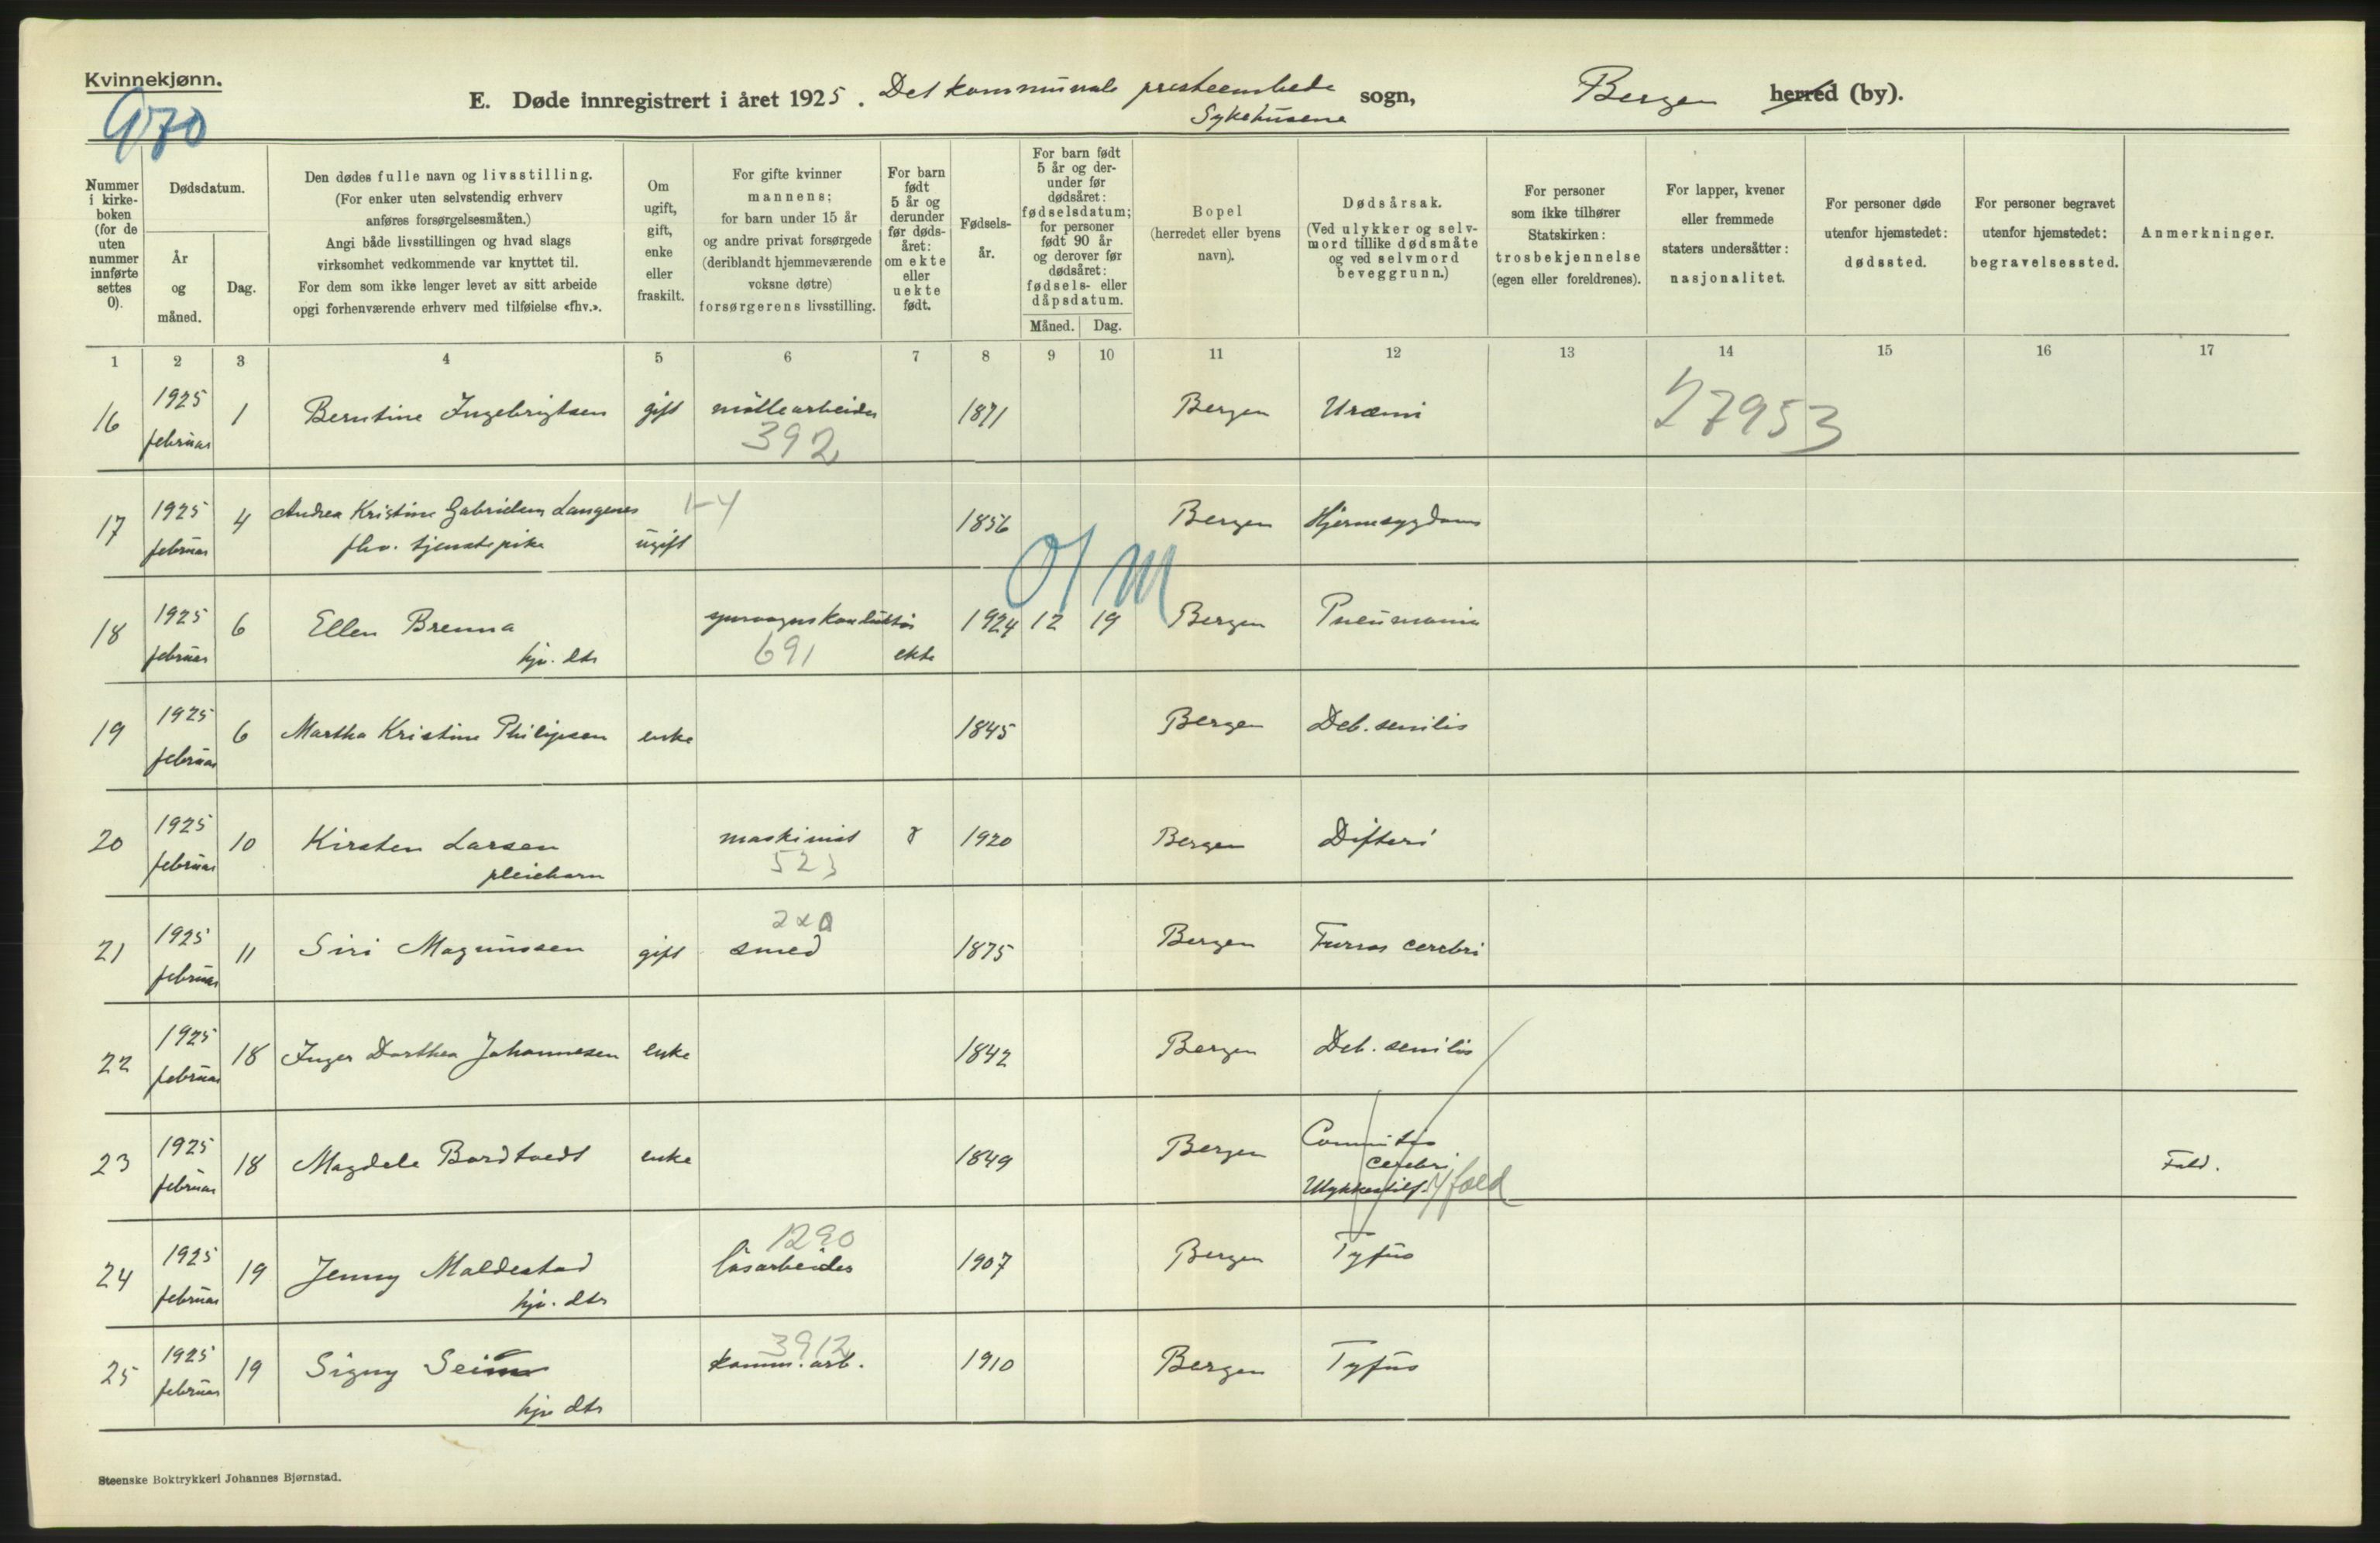 Kvinnekjønn.
970
E. Døde innregistrert i året 1925. Det kommunale presteembede sogn, Bergen herred (by).
Sykehusene
Nummer i kirkeboken (for de uten nummer innførte settes 0).
Dødsdatum.
År og måned.
Dag.
Den dødes fulle navn og livsstilling.
(For enker uten selvstendig erhverv
anføres forsørgelsesmåten.)
Angi både livsstillingen og hvad slags
virksomhet vedkommende var knyttet til.
For dem som ikke lenger levet av sitt arbeide
opgi forhenværende erhverv med tilføielse «fhv.».
Om ugift, gift, enke eller fraskilt.
For gifte kvinner
mannens;
for barn under 15 år
og andre privat forsørgede
(deriblandt hjemmeværende
voksne døtre)
forsørgerens livsstilling.
For barn født 5 år og derunder før dødsåret: om ekte eller uekte født.
Fødselsår.
For barn født 5 år og derunder før dødsåret: fødselsdatum; for personer født 90 år og derover før dødsåret: fødsels- eller dåpsdatum.
Måned. Dag.
Bopel
(herredet eller byens navn).
Dødsårsak.
(Ved ulykker og selvmord tillike dødsmåte og ved selvmord beveggrunn.)
For personer
som ikke tilhører
Statskirken:
trosbekjennelse
(egen eller foreldrenes).
For lapper, kvener
eller fremmede
staters undersåtter:
nasjonalitet.
For personer døde
utenfor hjemstedet:
dødssted.
For personer begravet
utenfor hjemstedet:
begravelsessted.
Anmerkninger.
1 2 3 4 5 6 7 8 9 10 11 12 13 14 15 16 17
16 1925 februar 1 Berntine Ingebrigtsen gift møllearbeider 1871 Bergen Uræmi 27953
392
17 1925 februar 4 Andrea Kristine Gabrielsen Langenes 1-4 1856 Bergen Hjernesygdom
fhv. tjenestepike ugift
O/M
18 1925 februar 6 Ellen Brenna sporvognskonduktør 1924 12 19 Bergen Pneumonia
hjv. dtr 691 ekte
19 1925 februar 6 Martha Kristine Philipsen enke 1845 Bergen Deb. senilis
20 1925 februar 10 Kirsten Larsen maskinist ? 1920 Bergen Difteri
pleiebarn 523
21 1925 februar 11 Siri Magnussen gift smed 1875 Bergen Tumor cerebri
22 1925 februar 18 Inger Dorthea Johannesen enke 1842 Bergen Deb. senilis
23 1925 februar 18 Magdele Bardtvedt enke 1849 Bergen Commotio Fald.
cerebri
Ulykkestilf. fald
1290
24 1925 februar 19 Jenny Maldestad løsarbeider 1907 Bergen Tyfus
hjv. dtr
3912
25 1925 februar 19 Signy Seim komm. arb. 1910 Bergen Tyfus
hjv dtr
Steenske Boktrykkeri Johannes Bjørnstad.